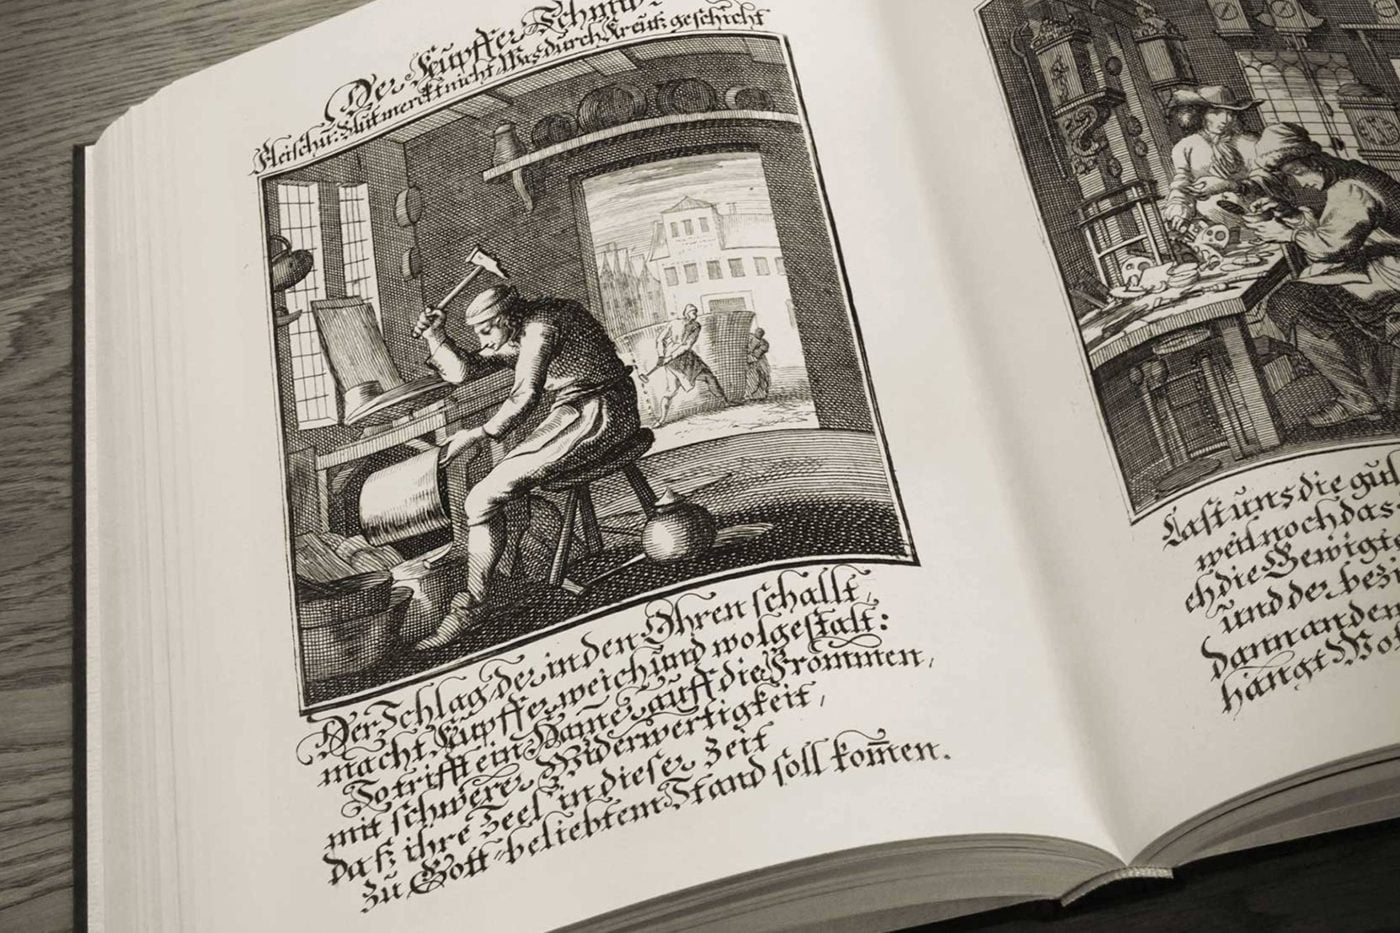 Der Kupffer-Schmid.
Fleisch u: Blut merckt nicht Was durch Kreütz geschicht
Der Schlag der in den Ohren schallt,
macht Kupffer weich und wolgestalt:
So trifft ein Hamer auff die Frommen,
mit schwerer Widerwertigkeit,
daß ihre Seel in dieser Zeit
zu Gott-beliebtem Stand soll kom̅en.
Last uns die gül
weil noch das
die Gewigt
und der
dann ander
hangt Wol